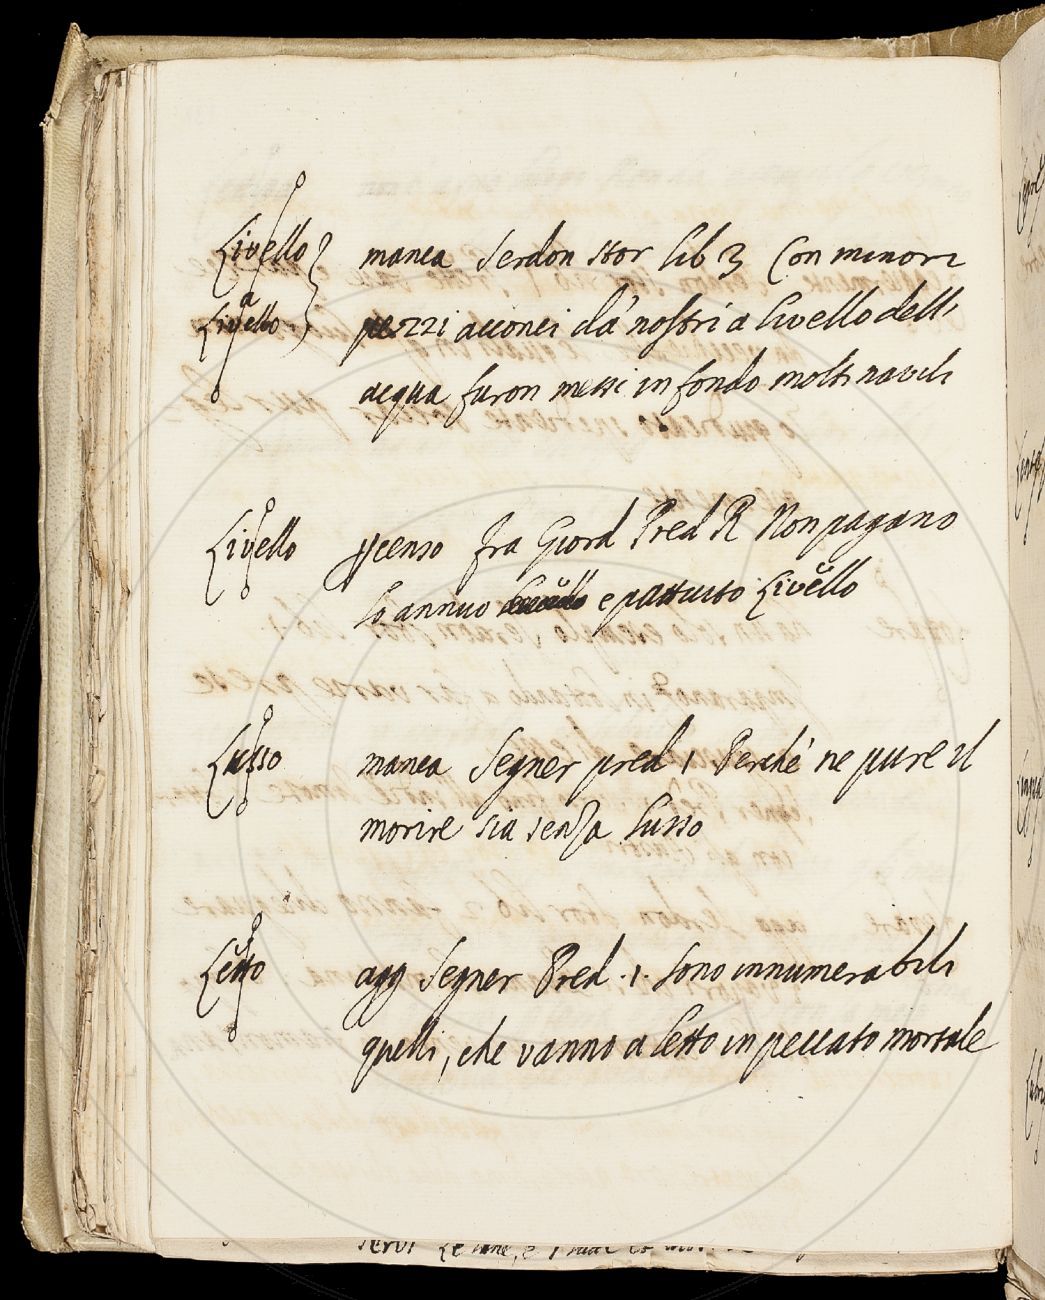 Livello manca Serdon stor lib 3 Con minori
a Livello pezzi acconci da' nostri a livello dell
acqua furon messi in fondo molti navili
Livello p censo fra Giord Pred R Non pagano
lo annuo e pattuito Livello
Lusso manca Segner pred 1 Perchè ne pure il
morire sia senza lusso
Letto agg Segner Pred. 1. Sono innumerabili
quelli, che vanno a letto in peccato mortale